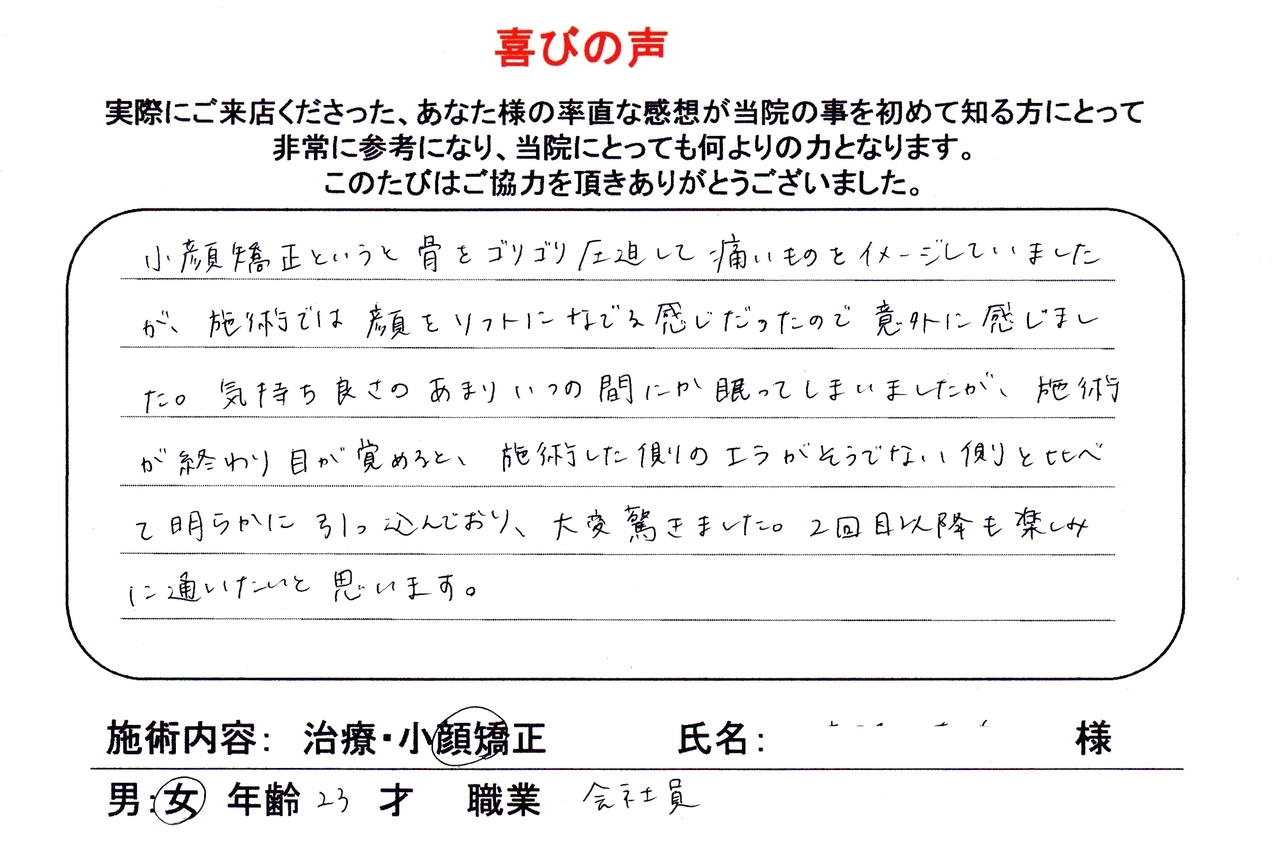 喜びの声
実際にご来店くださった、あなた様の率直な感想が当院の事を初めて知る方にとって
非常に参考になり、当院にとっても何よりの力となります。
このたびはご協力を頂きありがとうございました。
小顔矯正というと骨をゴリゴリ圧迫して痛いものをイメージしていました
が、施術では顔をソフトになでる感じだったので意外に感じまし
た。気持ち良さのあまりいつの間にか眠ってしまいましたが、施術
が終わり目が覚めると、施術した側のエラがそうでない側と比べ
て明らかに引っ込んでおり、大変驚きました。2回目以降も楽しみ
に通いたいと思います。
施術内容： 治療・小顔矯正 氏名： 様
男：女 年齢 23 才 職業 会社員